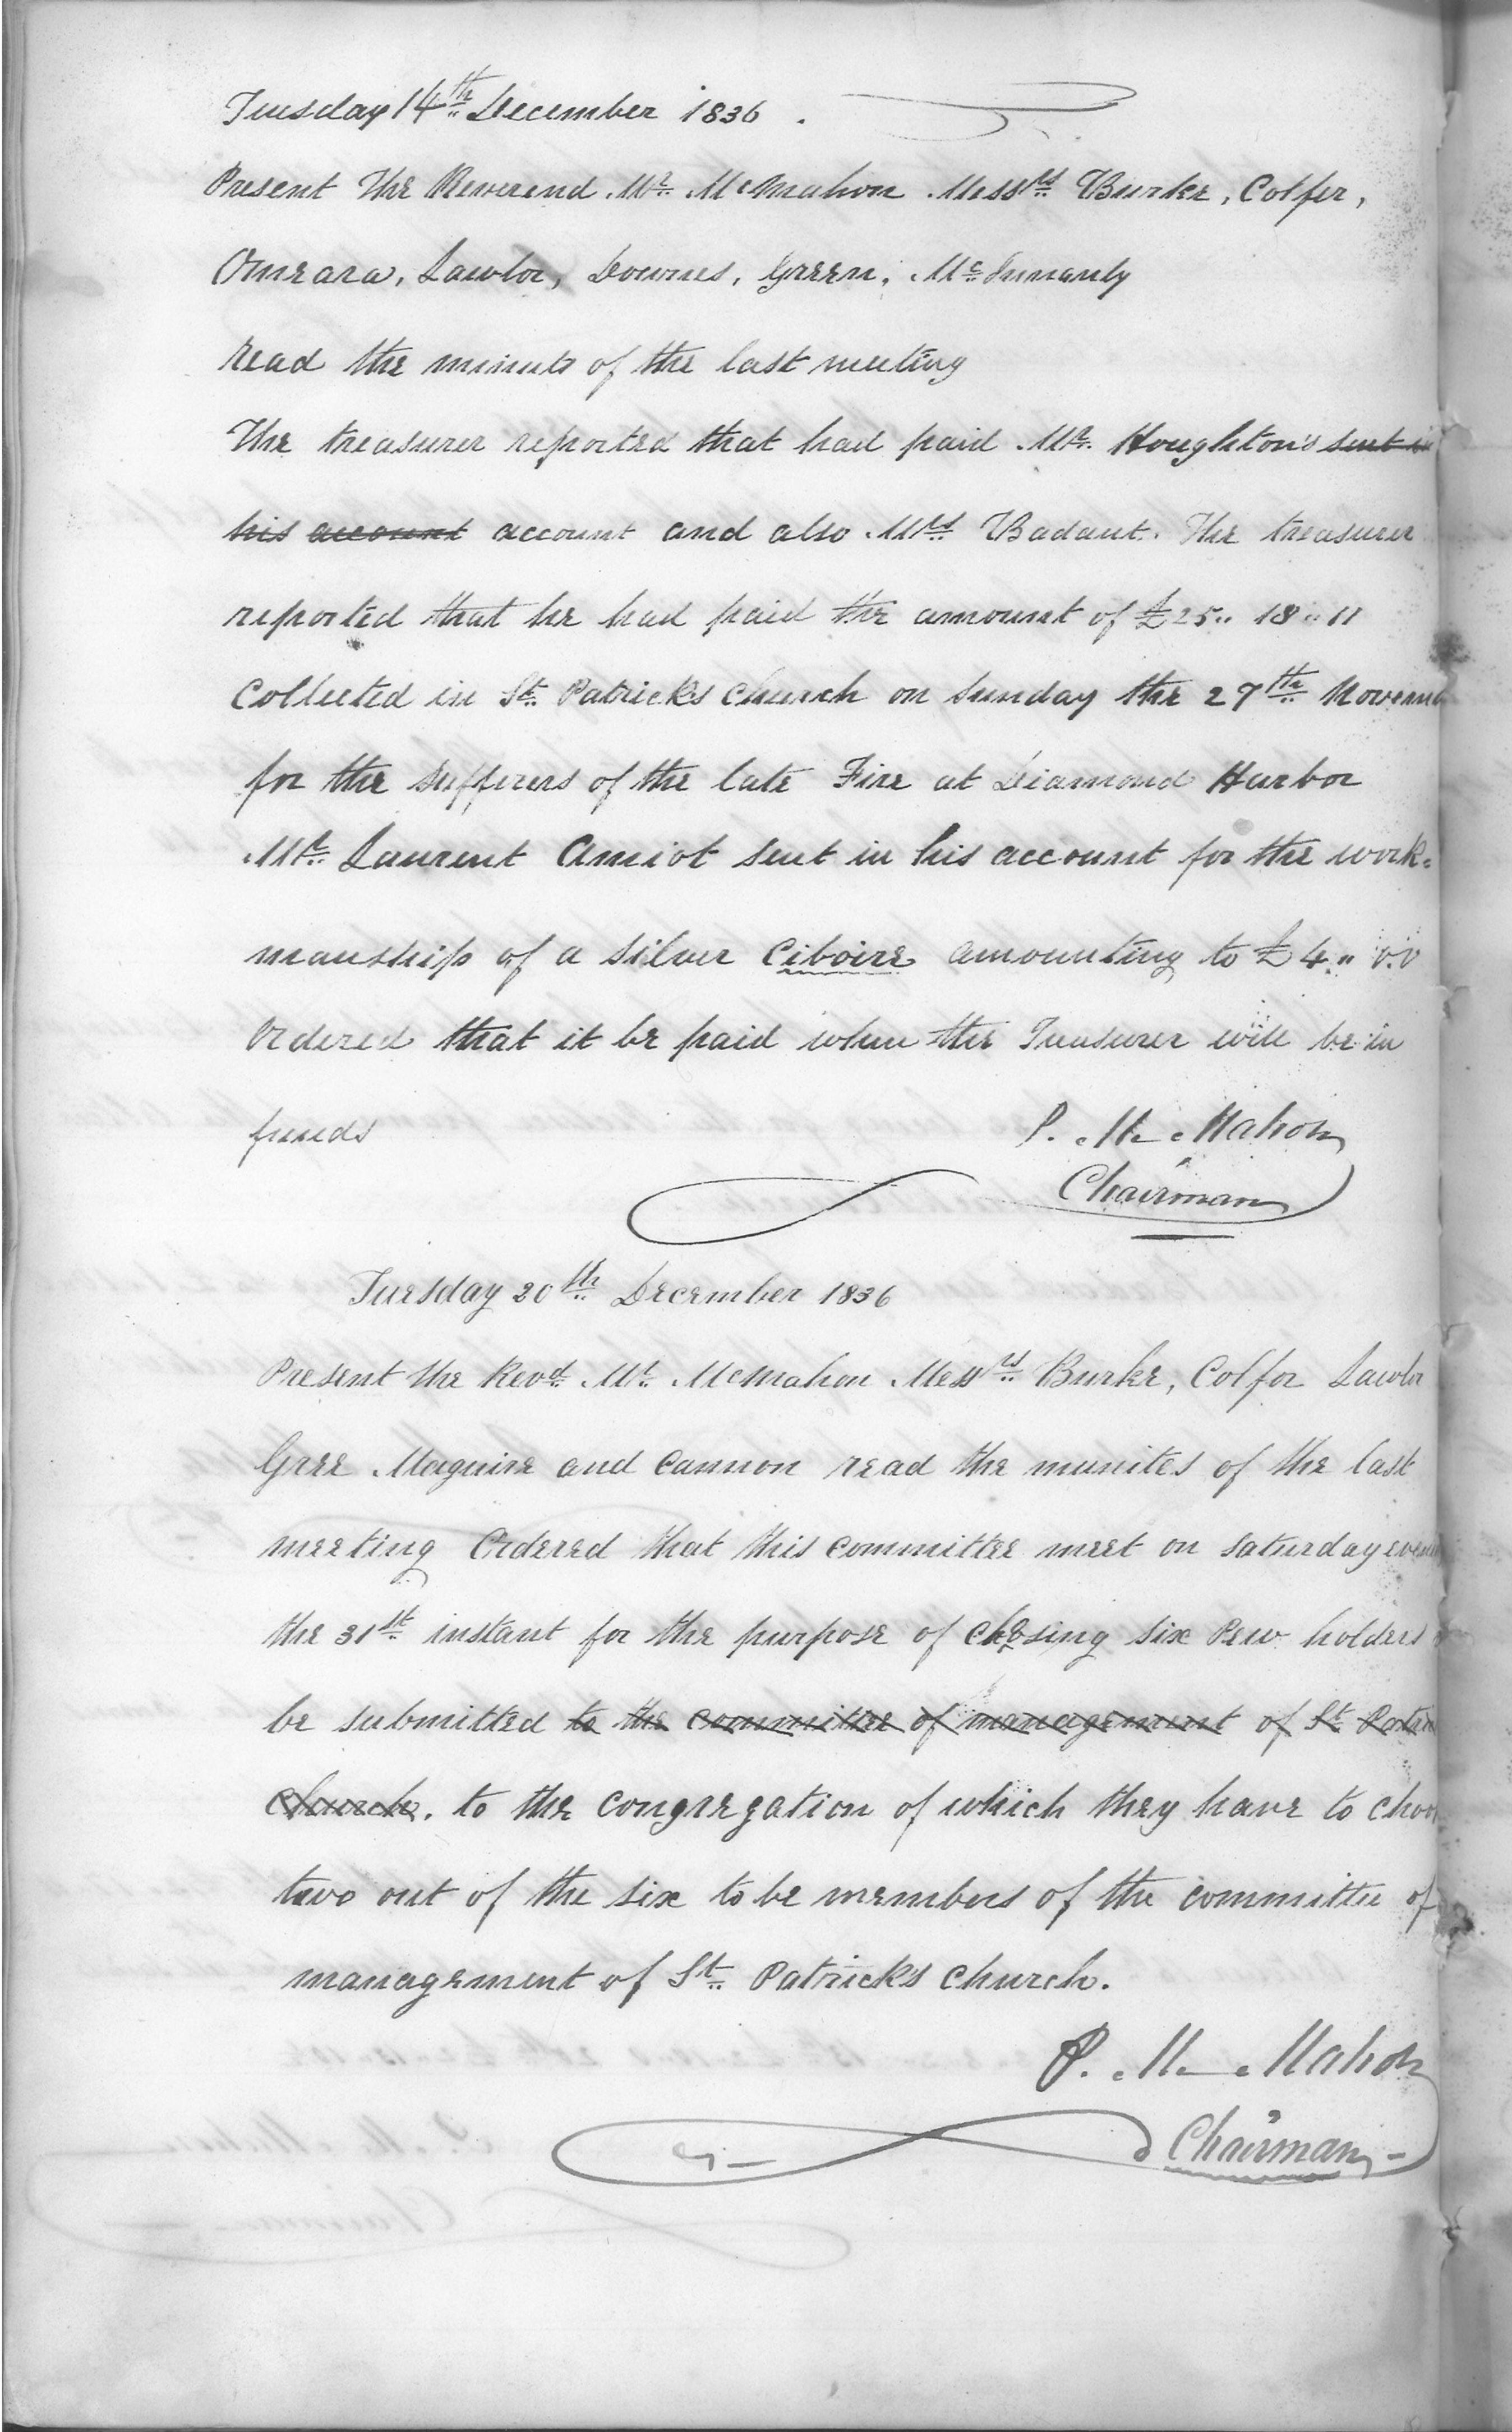 Tuesday 14th December 1836.
Present The Reverend Mr McMahon Messrs Burke, Colfer,
Omeara, Lawlor, Downes, Green,
read the minuts of the last meeting
The treasurer reported that had paid Mr. Houghton's sent in
his account account and also Mrs Badaut. The treasurer
reported that he had paid the amount of £25.. 18.. 11
Collected in St. Patrick's Church on Sunday the 27th
for the sufferers of the late Fire at Diamond Harbor
Mr. Laurent Amiot sent in his account for the work=
manship of a silver Ciboire amounting to £4.. 0.0
Ordered that it be paid when the Treasurer will be in
funds P. McMahon
Chairman
Tuesday 20th December 1836
Present the Revd. Mr. McMahon Messrs Burke, Colfor Lawlor
Gree Maguire and Cannon read the munites of the last
meeting Ordered that this committee meet on saturday
the 31st instant for the purpose of chosing six Pew holders
be submitted to the committee of management of St
church. to the congregation of which they have to
two out of the six to be members of the committee of
management of St. Patrick's church.
P. McMahon
Chairman